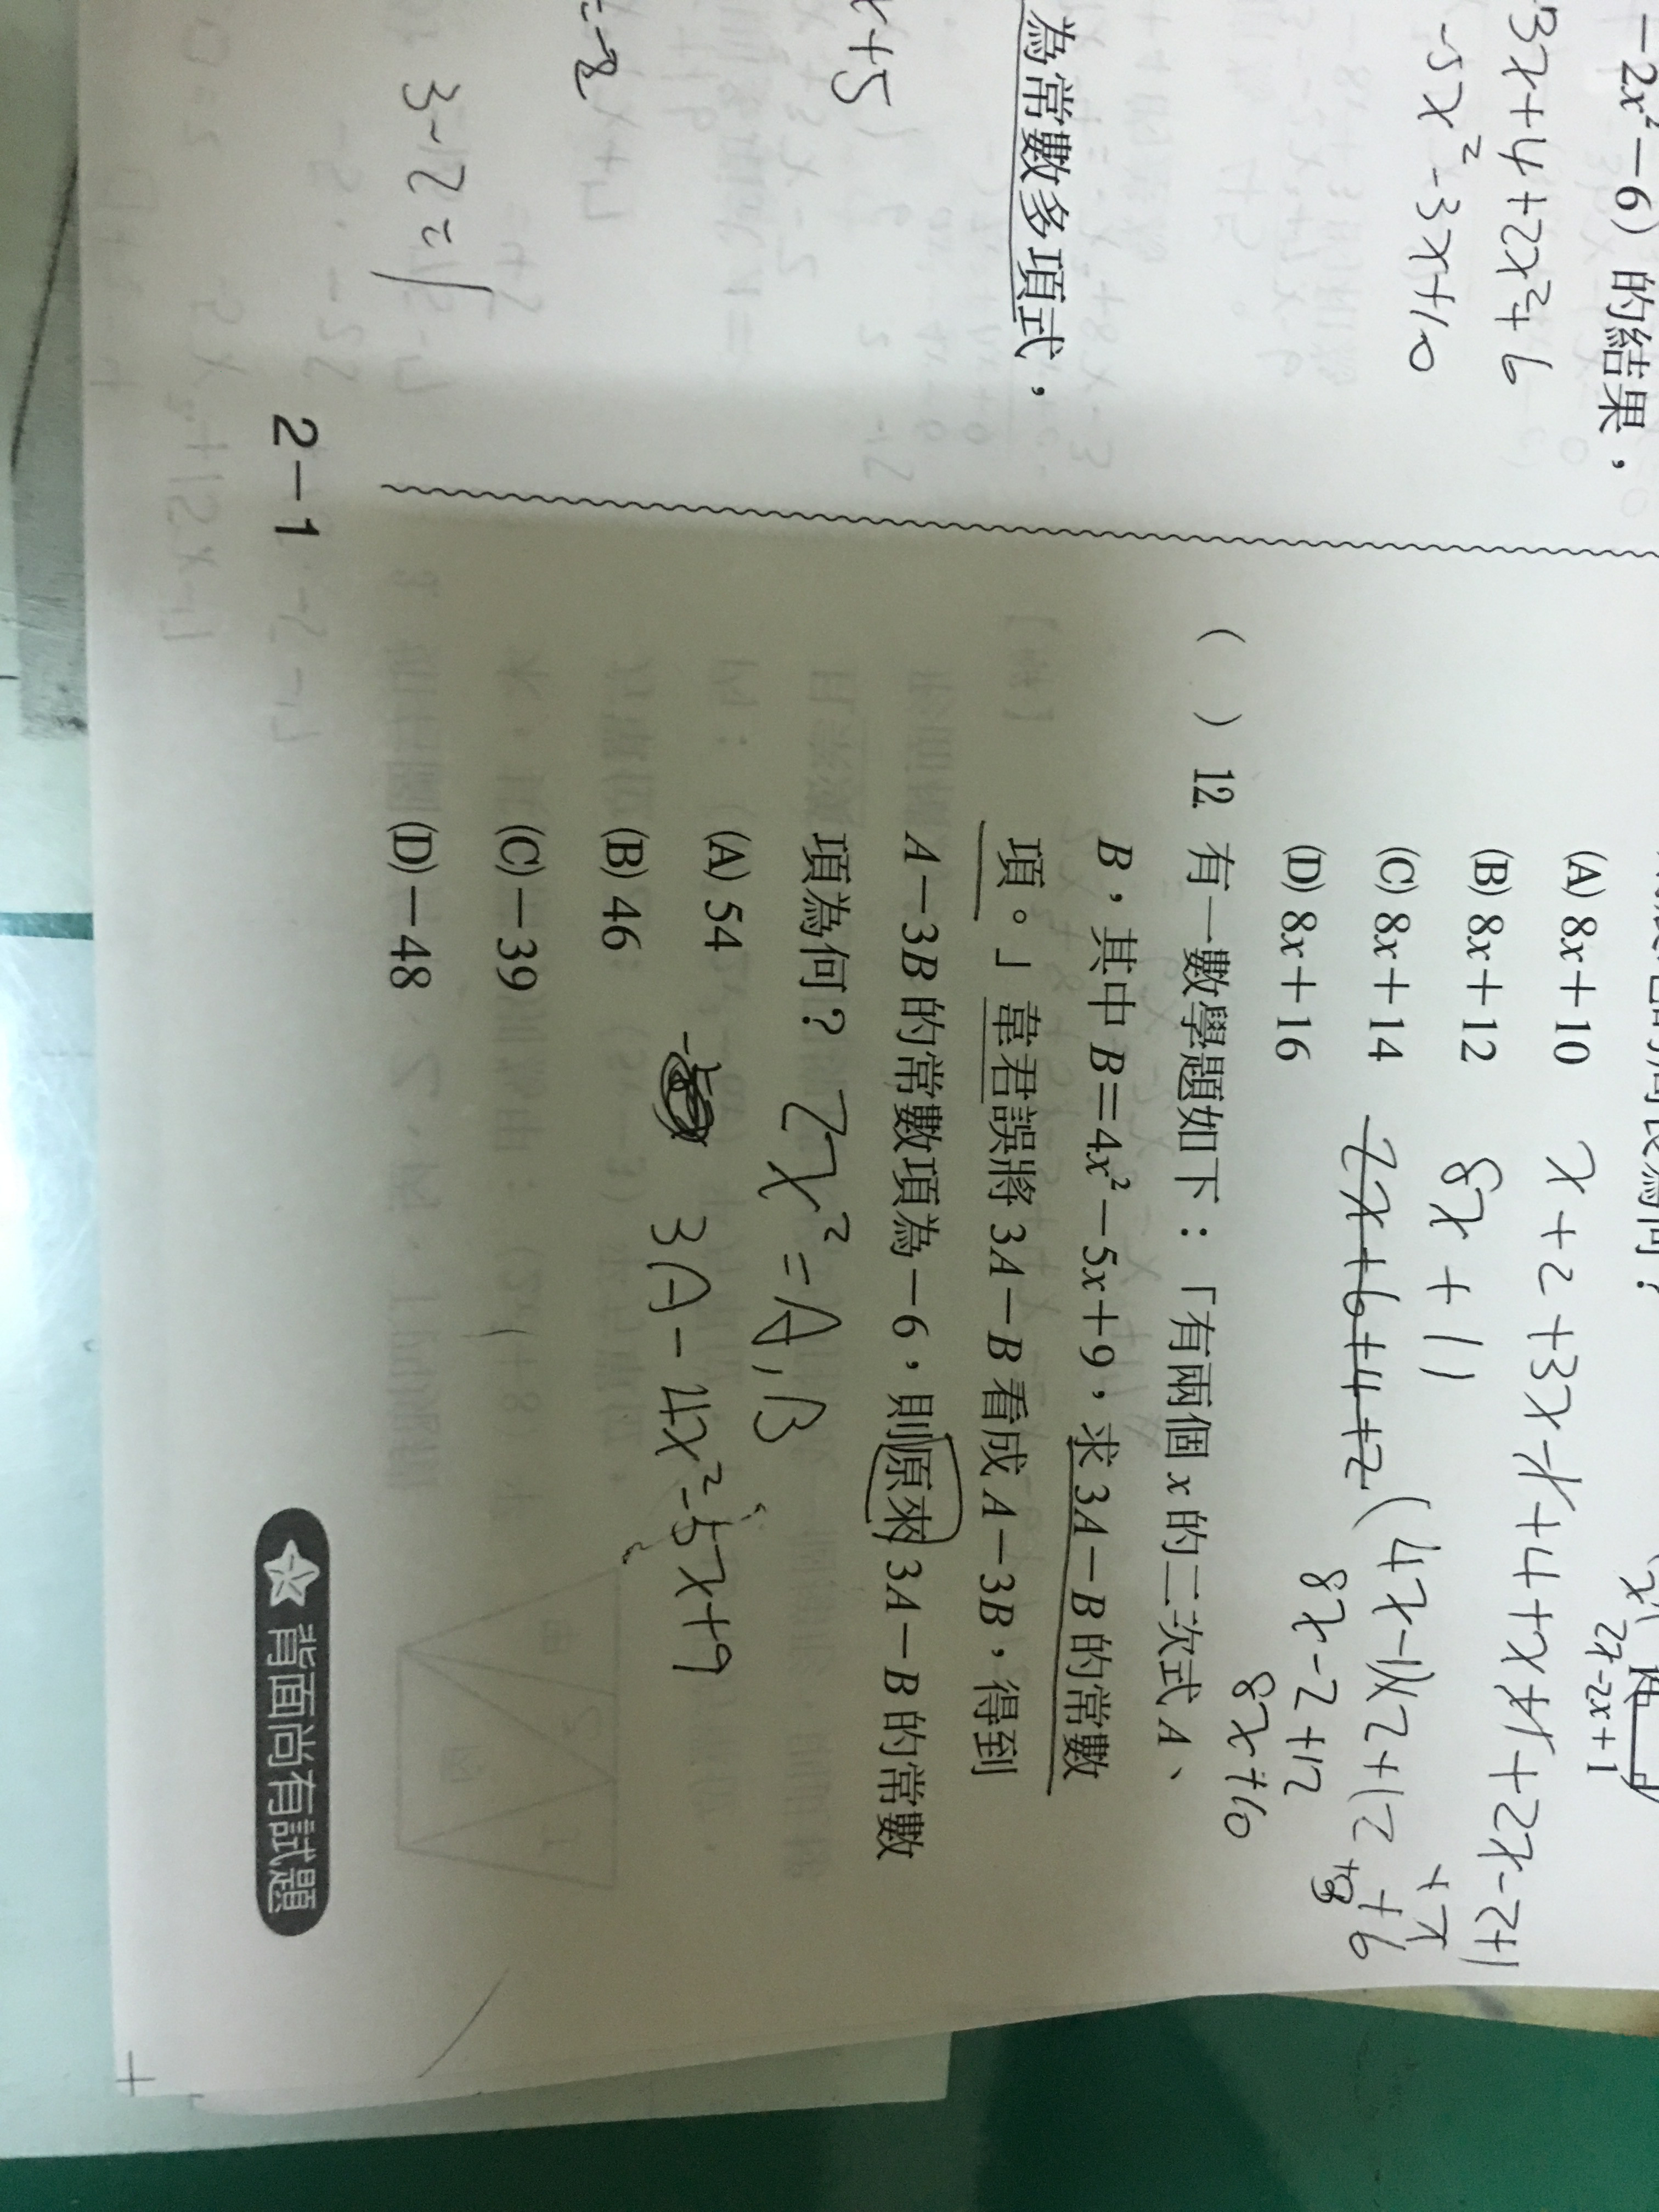 －2x²－6) 的結果，
3x+4+2x²+6
-5x²-3x+10
為常數多項式，
x+5
=-8
3-2=1
2－1
(A) 8x＋10
(B) 8x＋12
(C) 8x＋14
(D) 8x＋16
x+2+3x-1+4+x+1+2x-2+1
2x-2x+1
8x+11
7x+6+4+2
(4x-1)x2+12+6
8x-2+12
8x+10
(　) 12. 有一數學題如下：「有兩個 x 的二次式 A、
B，其中 B＝4x²－5x＋9，求 3A－B 的常數
項。」韋君誤將 3A－B 看成 A－3B，得到
A－3B 的常數項為－6，則原來 3A－B 的常數
項為何？
(A) 54
(B) 46
(C)－39
(D)－48
7x²=A,B
3A-4x²-5x+9
背面尚有試題